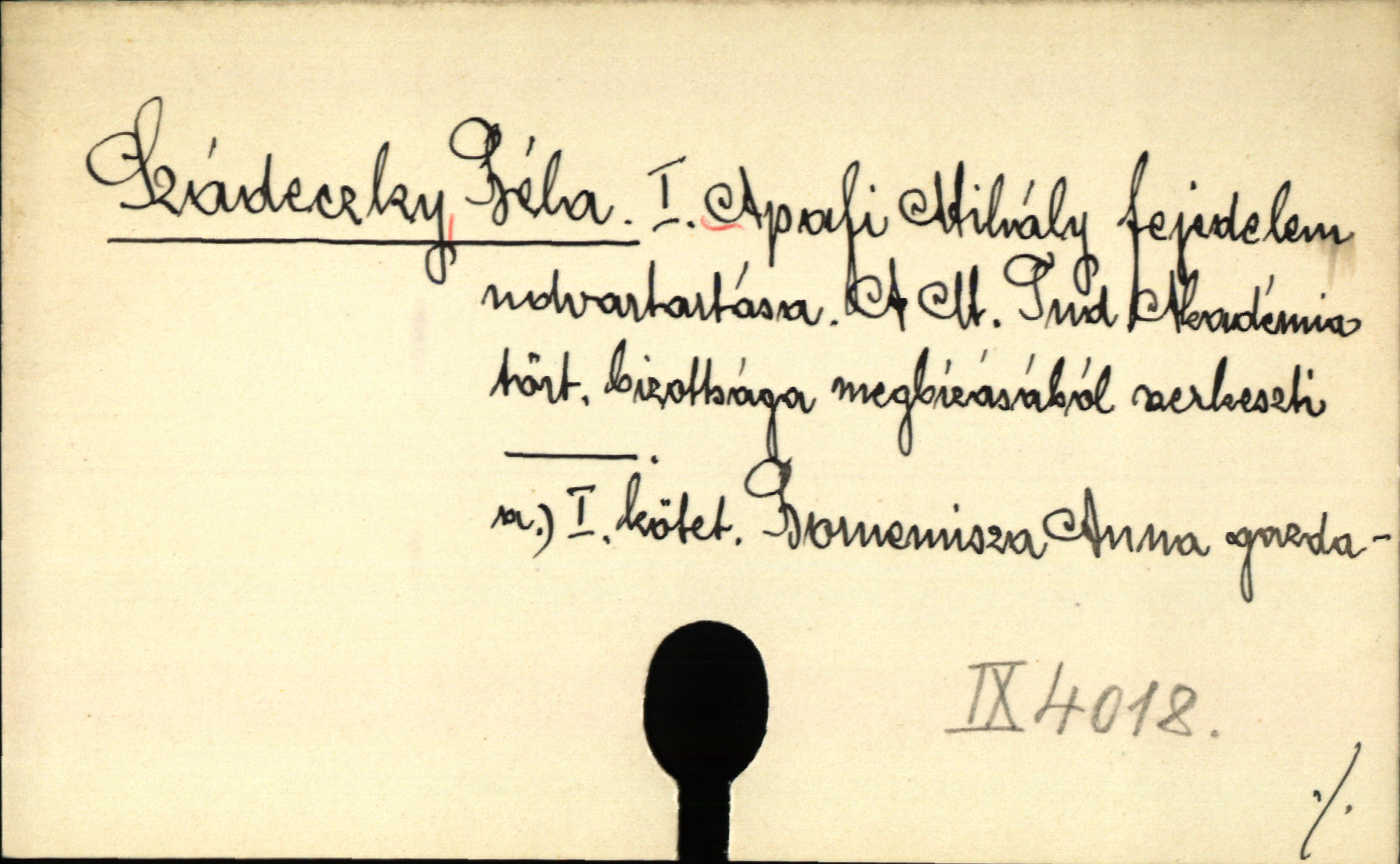 Szádeczky Béla. I. Apafi Mihály fejedelem
udvartartása. A M. Tud Akadémia
tört. bizottsága megbízásából szerkeszti
———.
a.) I. kötet. Bornemisza Anna gazda-
IX 4018.
./.